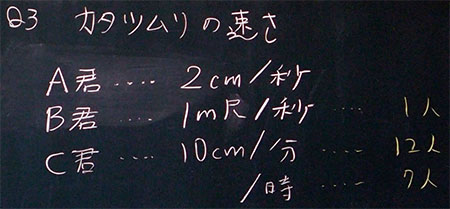 Q3 カタツムリの速さ
A君 ‥‥ 2cm/秒
B君 ‥‥ 1m尺/秒 ‥‥ 1人
C君 ‥‥ 10cm/分 ‥‥ 12人
/時 ‥‥ 7人